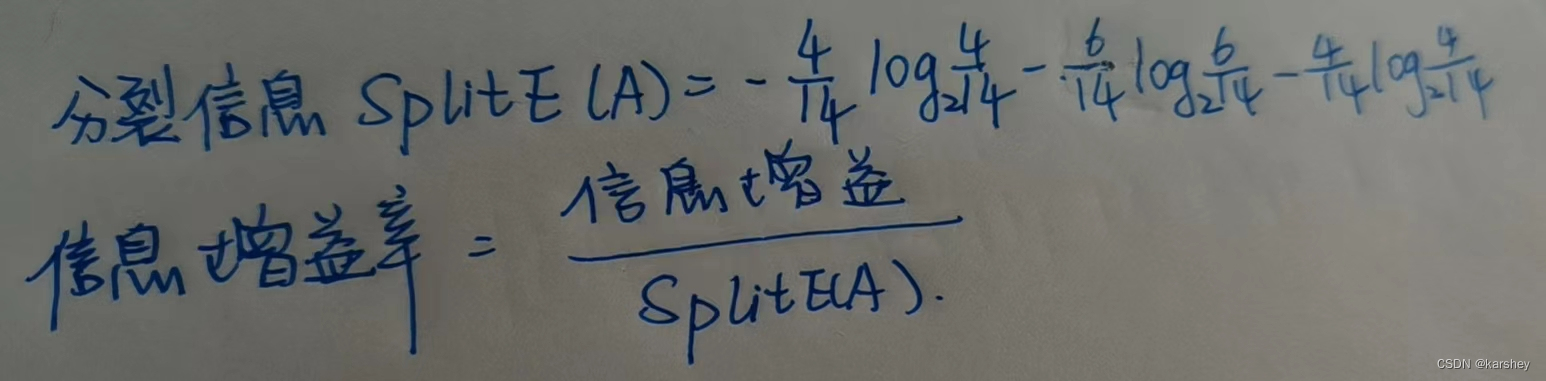 分裂信息 SplitE(A) = - 4/14 log₂ 4/14 - 6/14 log₂ 6/14 - 4/14 log₂ 4/14
信息增益率 = 信息增益 / SplitE(A).
CSDN @karshey